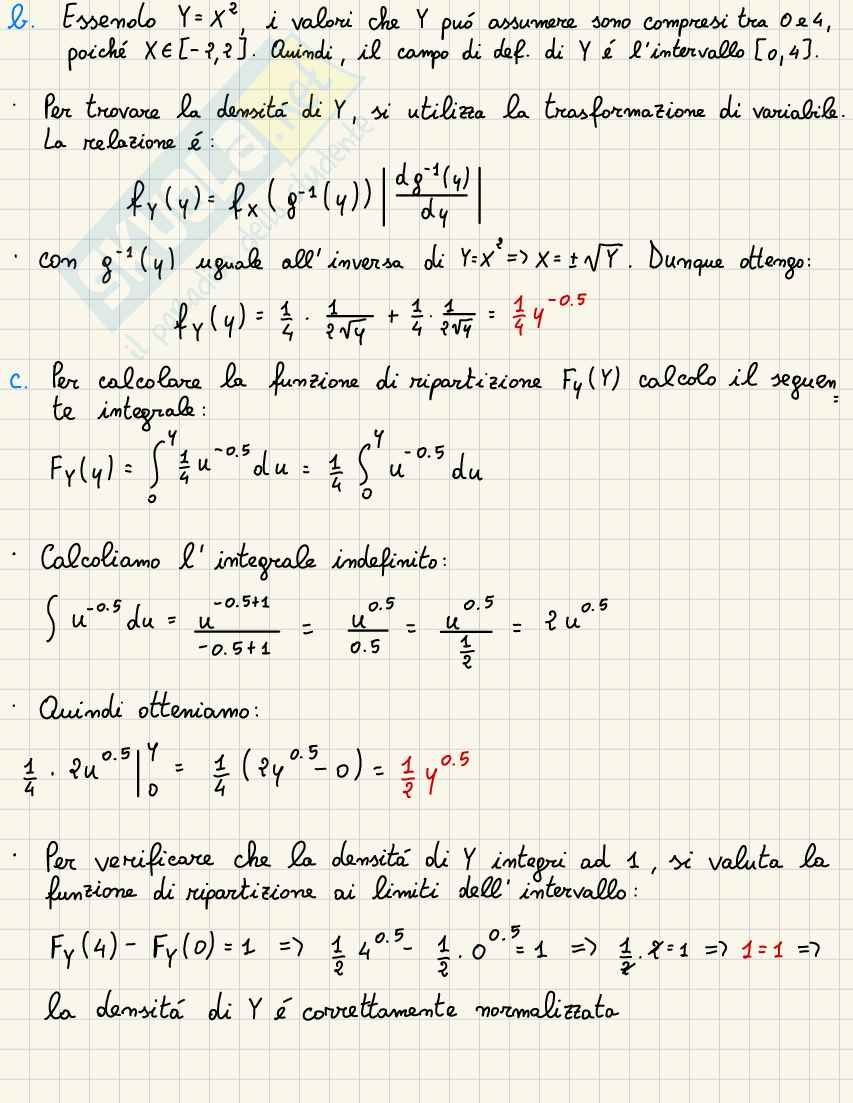 b. Essendo Y=X², i valori che Y puó assumere sono compresi tra 0 e 4,
poiché X∈[-2,2]. Quindi, il campo di def. di Y é l'intervallo [0,4].
· Per trovare la densitá di Y, si utilizza la trasformazione di variabile.
La relazione é:
f_Y(y) = f_X(g⁻¹(y)) |dg⁻¹(y)/dy|
· con g⁻¹(y) uguale all'inversa di Y=X² => X=±√Y. Dunque ottengo:
f_Y(y) = 1/4 · 1/(2√y) + 1/4 · 1/(2√y) = 1/4 y^(-0.5)
c. Per calcolare la funzione di ripartizione F_Y(Y) calcolo il seguen=
te integrale:
F_Y(y) = ∫₀^Y 1/4 u^(-0.5) du = 1/4 ∫₀^Y u^(-0.5) du
· Calcoliamo l'integrale indefinito:
∫ u^(-0.5) du = u^(-0.5+1)/(-0.5+1) = u^0.5/0.5 = u^0.5/(1/2) = 2u^0.5
· Quindi otteniamo:
1/4 · 2u^0.5 |₀^Y = 1/4 (2y^0.5 - 0) = 1/2 y^0.5
· Per verificare che la densitá di Y integri ad 1, si valuta la
funzione di ripartizione ai limiti dell'intervallo:
F_Y(4) - F_Y(0) = 1 => 1/2 4^0.5 - 1/2 · 0^0.5 = 1 => 1/2 · 2 = 1 => 1=1 =>
la densitá di Y é correttamente normalizzata
SKUOLA.net